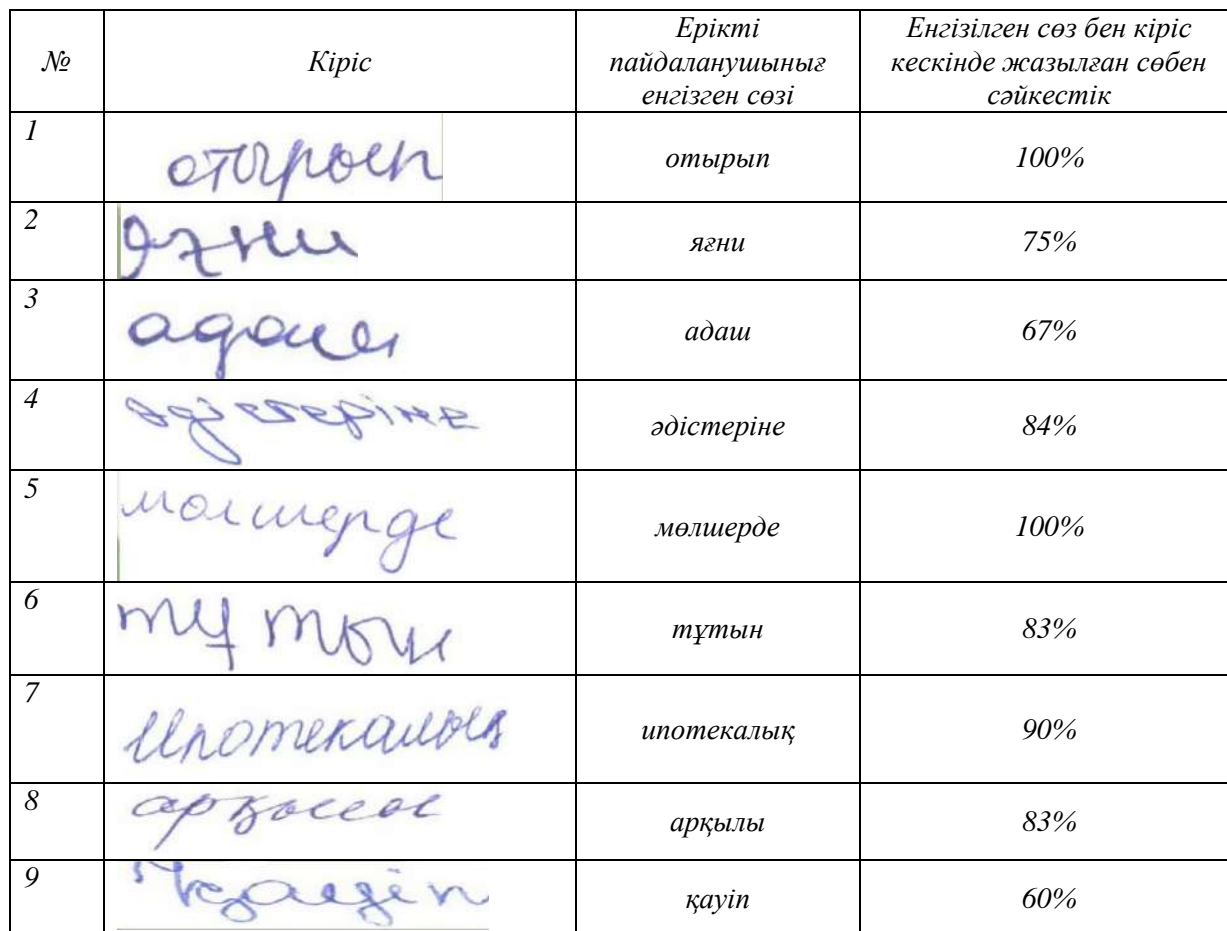 № Кіріс Ерікті пайдаланушының енгізген сөзі Енгізілген сөз бен кіріс кескінде жазылған сөбен сәйкестік
1 отырып отырып 100%
2 яғни яғни 75%
3 адаш 67%
4 әдістеріне әдістеріне 84%
5 мөлшерде мөлшерде 100%
6 тұтын тұтын 83%
7 ипотекалық ипотекалық 90%
8 арқылы арқылы 83%
9 қауіп 60%